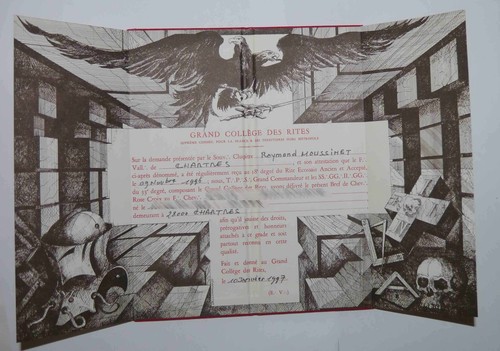 GRAND COLLÈGE DES RITES
SUPRÊME CONSEIL POUR LA FRANCE & LES
Sur la demande présentée par le Souv∴ Chapitre Raymond MOUSSINET
Vall∴ de CHARTRES et son attestation que le F∴
ci-après dénommé, a été régulièrement reçu au 18e degré du Rite Écossais Ancien et Accepté
le 1996, nous, T∴ P∴ S∴ Grand Commandeur et les SS∴ GG∴ II∴ GG∴
du 33e degré, composant le Grand Collège des Rites, avons délivré le présent Bref de Chev∴
Rose Croix au F∴ Chev∴
né le
demeurant à 28000 CHARTRES
afin qu'il jouisse des droits,
prérogatives et honneurs
attachés à ce grade et soit
partout reconnu en cette
qualité.
Fait et donné au Grand
Collège des Rites,
le 10 Janvier 1997
(E∴ V∴).